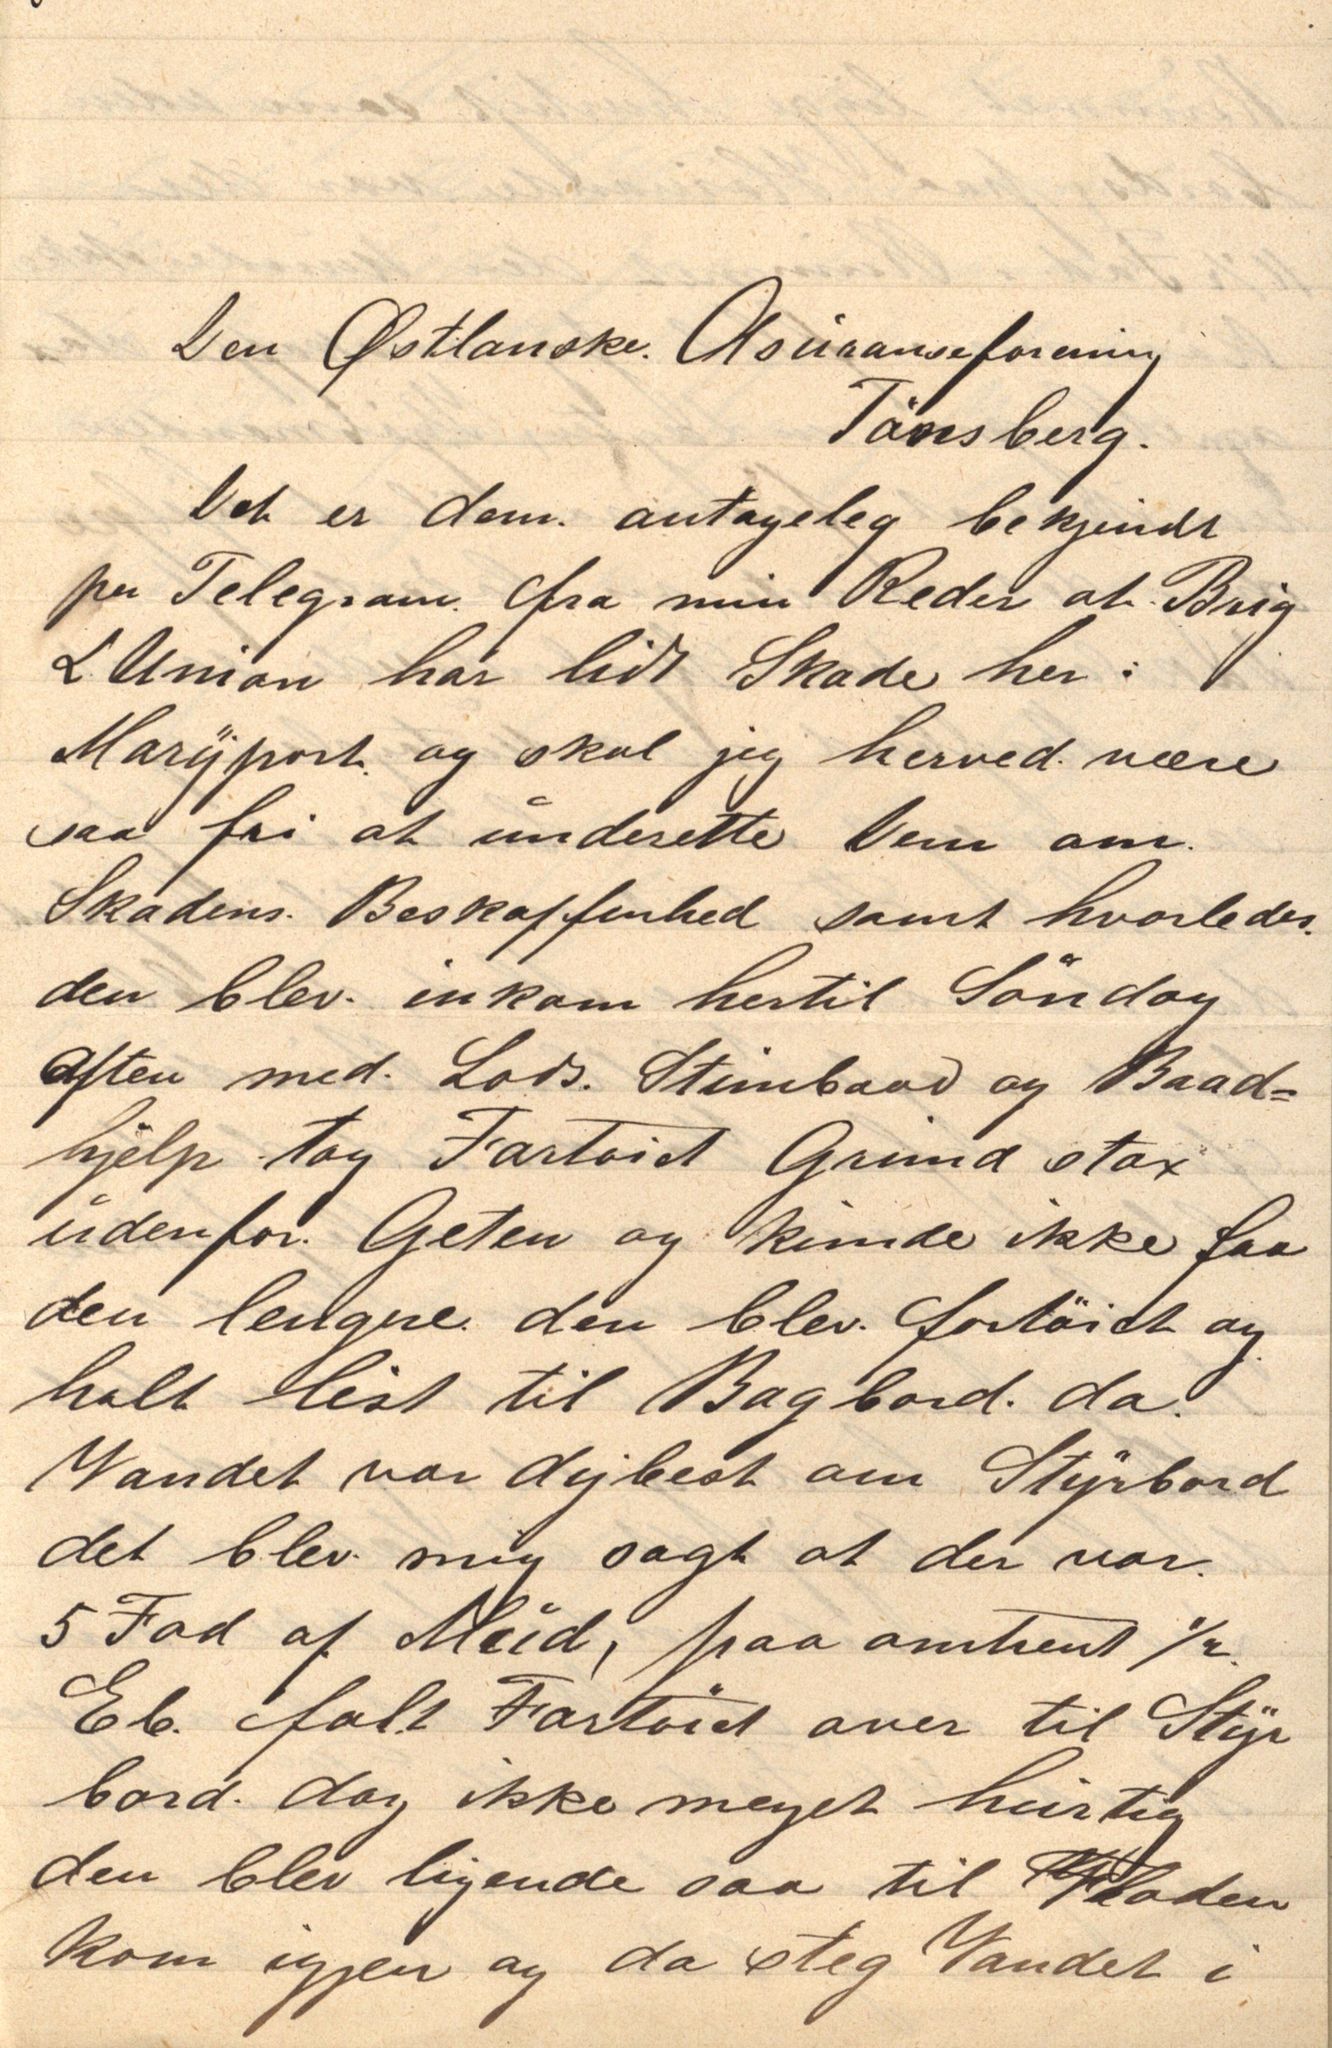 Den Østlanske Asuranseforening
Tönsberg.
Det er dem antageleg bekjendt
per Telegram fra min Reder at Brig
L'Union har lidt Skade her i
Maryport og skal jeg herved være
saa fri at underette Dem om
Skadens Beskaffenhed samt hvorledes
den blev. inkom hertil Söndag
Aften med Lods. Stimbaad og Baad=
hjelp tog Fartöiet Grund stax
udenfor Geten og kunde ikke faa
den lengre. den blev fortöiet og
halt list til Bagbord. da
Vandet var dybest om Styrbord
det blev mig sagt at der var
5 Fod af Mud, paa omtrent 1/2
Eb. falt Fartöiet over til Styr
bord. dog ikke meget hurtig
den blev ligende saa til Floden
kom igjen og da steg Vandet i